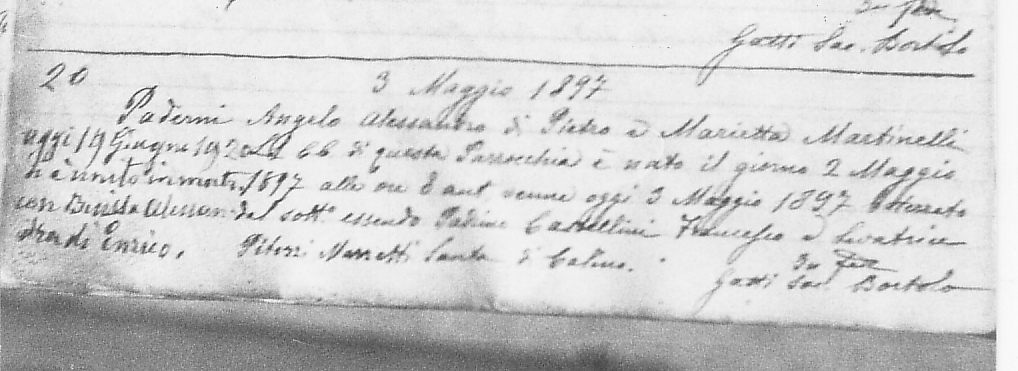 In fede
Gatti Sac. Bortolo
20 3 Maggio 1897
Paderni Angelo Alessandro di Pietro e Marietta Martinelli
oggi 19 Giugno 1920 di questa Parrocchia è nato il giorno 2 Maggio
si è unito in matr. 1897 alle ore 8 ant. venne oggi 3 Maggio 1897 battezzato
con Alessan- dal sotto essendo Padrino Castellini Francesco e Levatrice
dra di Enrico. Pitozzi Santa di Calino.
In fede
Gatti Sac. Bortolo